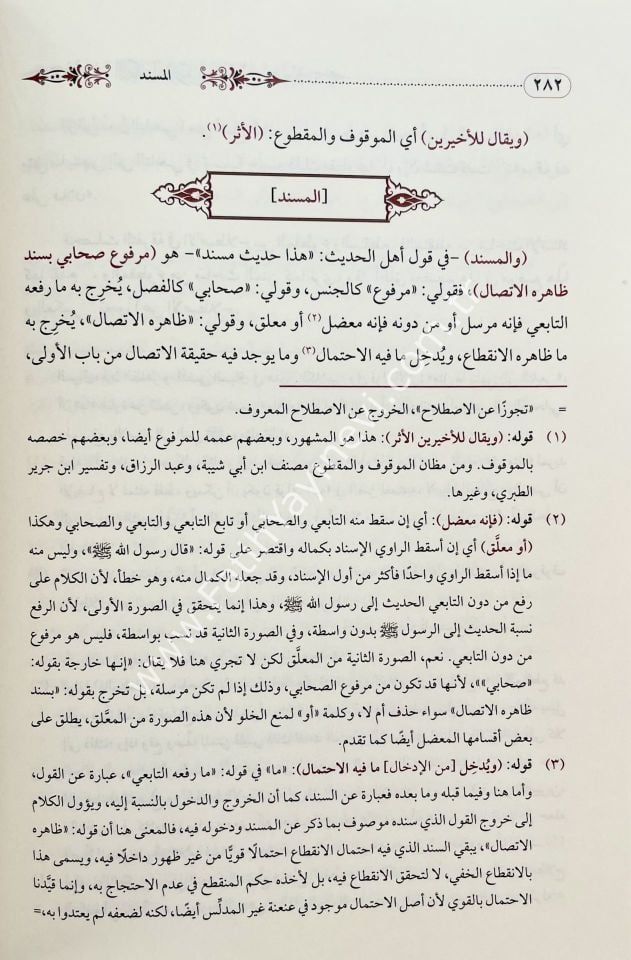 ٢٨٢ المسند
(ويقال للأخيرين) أي الموقوف والمقطوع: (الأثر)(١).
[المسند]
(والمسند) -في قول أهل الحديث: «هذا حديث مسند»- هو (مرفوع صحابي بسند
ظاهره الاتصال)؛ فقولي: «مرفوع» كالجنس، وقولي: «صحابي» كالفصل، يُخرِج به ما رفعه
التابعي فإنه مرسل أو من دونه فإنه معضل(٢) أو معلق، وقولي: «ظاهره الاتصال»، يُخرِج به
ما ظاهره الانقطاع، ويُدخِل ما فيه الاحتمال(٣) وما يوجد فيه حقيقة الاتصال من باب الأولى،
= «تجوزًا عن الاصطلاح»، الخروج عن الاصطلاح المعروف.
(١) قوله: (ويقال للأخيرين الأثر): هذا هو المشهور، وبعضهم عممه للمرفوع أيضا، وبعضهم خصصه
بالموقوف. ومن مظان الموقوف والمقطوع مصنف ابن أبي شيبة، وعبد الرزاق، وتفسير ابن جرير
الطبري، وغيرها.
(٢) قوله: (فإنه معضل): أي إن سقط منه التابعي والصحابي أو تابع التابعي والتابعي والصحابي وهكذا
(أو معلَّق) أي إن أسقط الراوي الإسناد بكماله واقتصر على قوله: «قال رسول الله ﷺ»، وليس منه
ما إذا أسقط الراوي واحدًا فأكثر من أول الإسناد، وقد جعله الكمال منه، وهو خطأ، لأن الكلام على
رفع من دون التابعي الحديث إلى رسول الله ﷺ، وهذا إنما يتحقق في الصورة الأولى، لأن الرفع
نسبة الحديث إلى الرسول ﷺ بدون واسطة، وفي الصورة الثانية قد نسب بواسطة، فليس هو مرفوع
من دون التابعي. نعم، الصورة الثانية من المعلَّق لكن لا تجري هنا فلا يقال: «إنها خارجة بقوله:
«صحابي»»، لأنها قد تكون من مرفوع الصحابي، وذلك إذا لم تكن مرسلة، بل تخرج بقوله: «بسند
ظاهره الاتصال» سواء حذف أم لا، وكلمة «أو» لمنع الخلو لأن هذه الصورة من المعَّلق، يطلق على
بعض أقسامها المعضل أيضًا كما تقدم.
(٣) قوله: (ويُدخِل [من الإدخال] ما فيه الاحتمال): «ما» في قوله: «ما رفعه التابعي»، عبارة عن القول،
وأما هنا وفيما قبله وما بعده فعبارة عن السند، كما أن الخروج والدخول بالنسبة إليه، ويؤول الكلام
إلى خروج القول الذي سنده موصوف بما ذكر عن المسند ودخوله فيه، فالمعنى هنا أن قوله: «ظاهره
الاتصال»، يبقي السند الذي فيه احتمال الانقطاع احتمالًا قويًّا من غير ظهور داخلًا فيه، ويسمى هذا
بالانقطاع الخفي، لا لتحقق الانقطاع فيه، بل لأخذه حكم المنقطع في عدم الاحتجاج به، وإنما قيَّدنا
الاحتمال بالقوي لأن أصل الاحتمال موجود في عنعنة غير المدلِّس أيضًا، لكنه لضعفه لم يعتدوا به،=